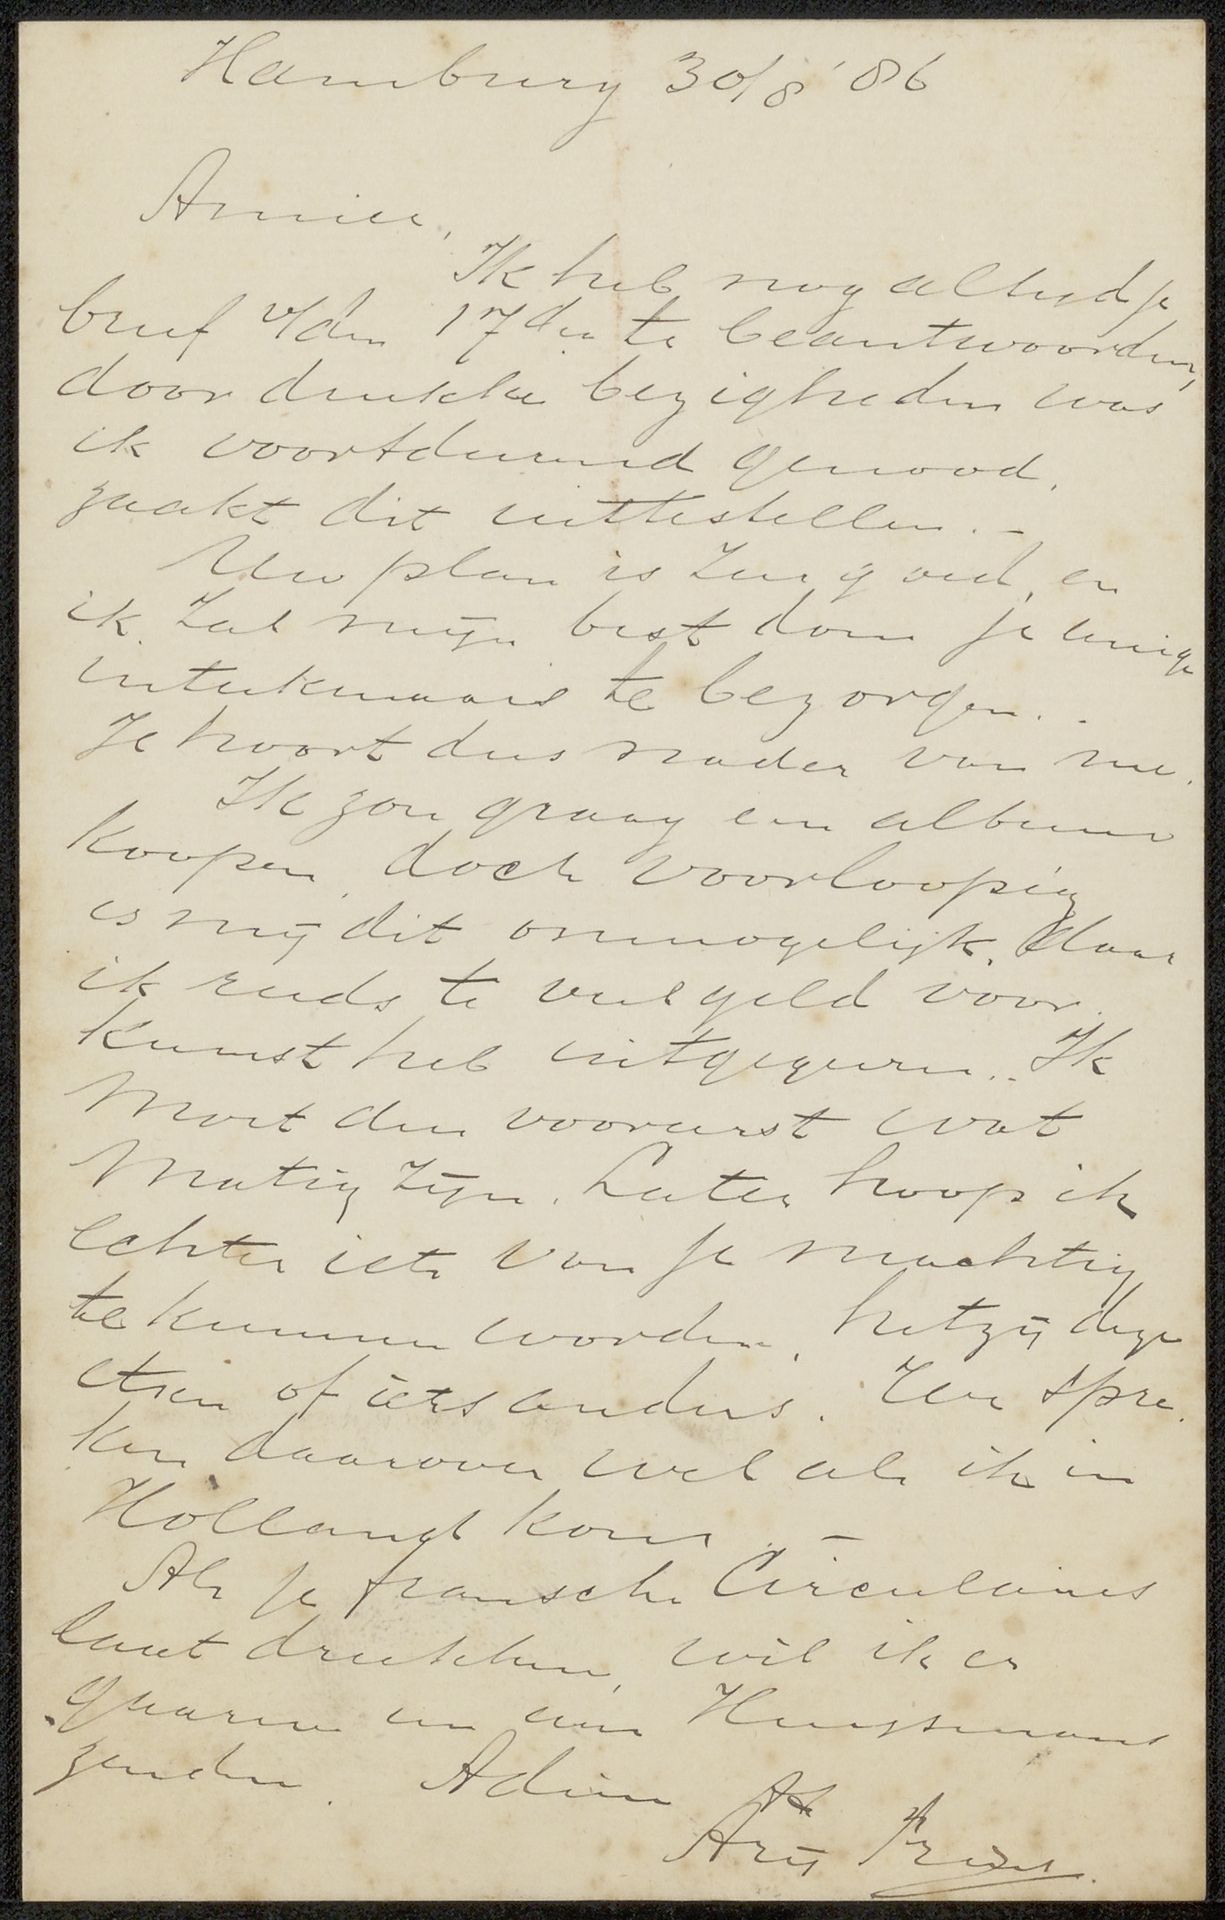 Hamburg 30/8 '86
Amice,
Ik heb nog altijd je
brief v/den 17den te beantwoorden,
door drukke bezigheden was
ik voortdurend genood-
zaakt dit uittestellen. -
Uw plan is zeer goed, en
ik zal mijn best doen je eenige
intekenaars te bezorgen. -
Je hoort dus nader van me.
Ik zou graag een album
koopen, doch voorloopig
is mij dit onmogelijk, daar
ik reeds te veel geld voor
kunst heb uitgegeven. Ik
moet den vooreerst wat
matig zijn. Later hoop ik
echter iets van je machtig
te kunnen worden, hetzij deze
etsen of iets anders. We spre-
ken daarover wel als ik in
Holland kom. -
Als je fransche Circulaires
laat drukken, wil ik er
gaarne een aan Huysmans
zenden. Adieu
Arij Prins